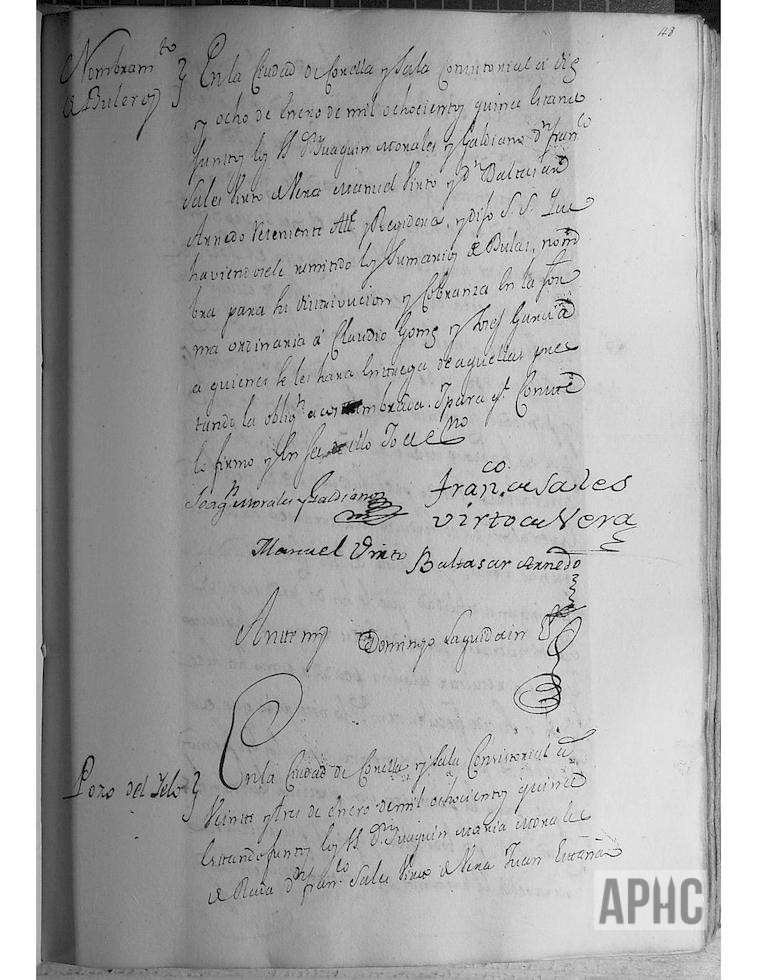 43
Nombramto
de Buleros
En la Ciudad de Corella y Sala Consistorial a diez
y ocho de Enero de mil ochocientos quince Estando
Juntos los SS Dn Juaquin Morales y Galdiano Dn Franco
Sales Virto de Vera Manuel Virto y Dn Baltasar
Arnedo Teniente Alle y Regidores, y dijo S. S. Que
haviendosele remitido los Sumarios de Bulas, nom
bra para su distrivucion y Cobranza En la for
ma ordinaria a Claudio Gomz y Josef Garcia
a quienes se les hara Entrega de aquellas pres
tando la obligon acostumbrada. Y para q.e Conste
lo firmo y En fee de ello Yo el Esno
Joaqn Morales y Galdiano
Franco. de Sales
Virto de Vera
Manuel Virto
Baltasar Arnedo
Ante mi Domingo Laquidain
Pozo del Yelo
En la Ciudad de Corella y Sala Consistorial a
Veinte y tres de Enero de mil ochocientos quince
Estando Juntos los SS Dn Juaquin Maria Morales
de Rada Dn Franco Sales Virto de Vera Juan
APHC